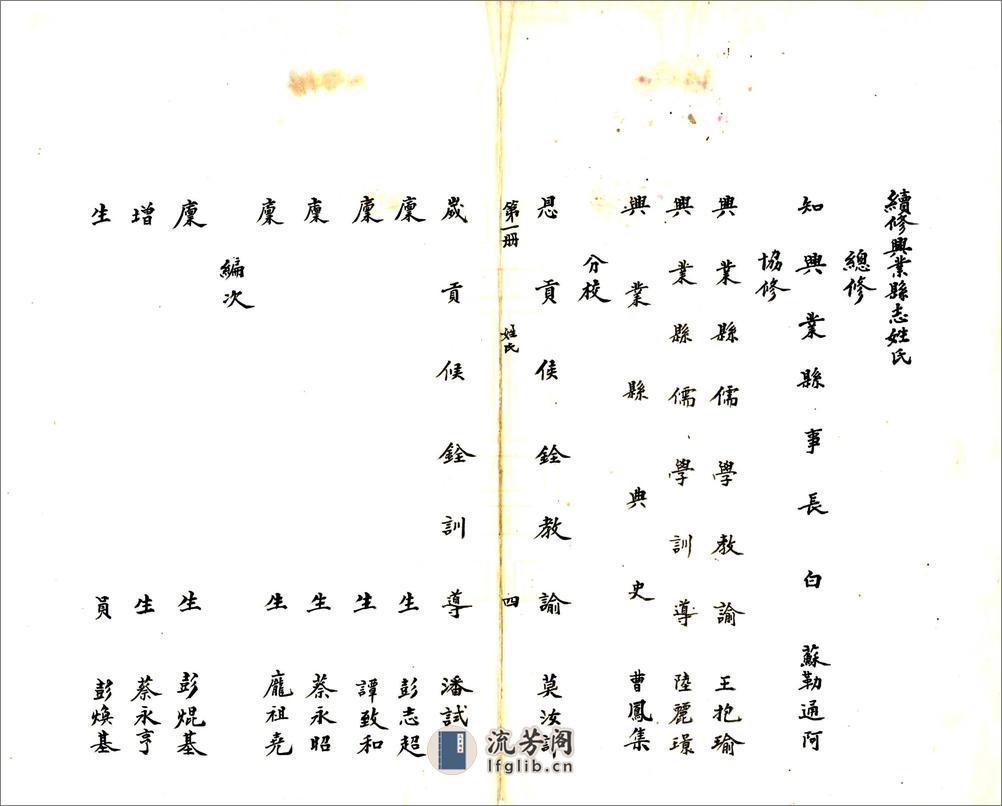 續修興業縣志姓氏
總修
知興業縣事長白蘇勒通阿
協修
興業縣儒學教諭王抱瑜
興業縣儒學訓導陸麗璟
興業縣典史曹鳳集
分校
恩貢侯銓教諭莫汝訓
第一册 姓氏 四
歲貢候銓訓導潘試
廩生彭志超
廩生譚致和
廩生蔡永昭
廩生龐祖堯
編次
廩生彭焜基
增生蔡永亨
生員彭煥基
流芳阁
lfglib.cn